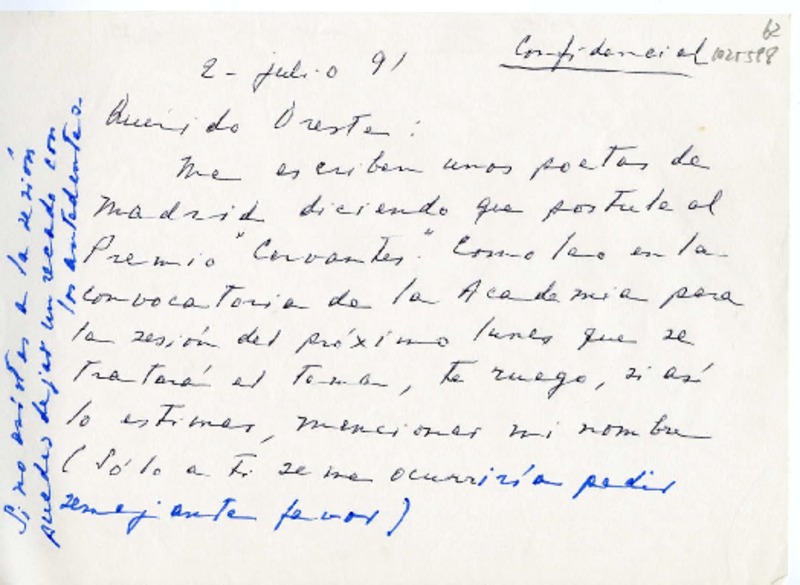 62
Confidencial 1025598
2 - julio 91
Querido Oreste:
Me escriben unos poetas de
Madrid diciendo que postule al
Premio "Cervantes". Como leo en la
convocatoria de la Academia para
la sesión del próximo lunes que se
tratará el tema, te ruego, si así
lo estimas, mencionar mi nombre
(Sólo a ti se me ocurriría pedir
semejante favor)
Si no asistes a la sesión
puedes dejar un recado con
los antedentes.